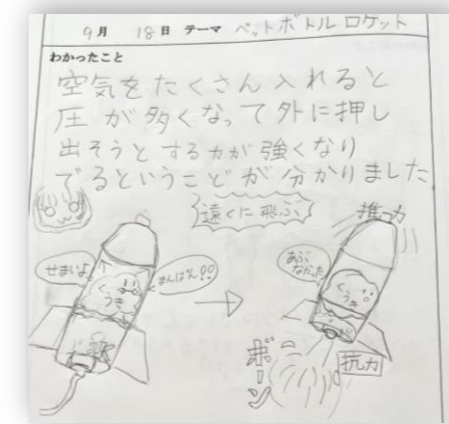 9月 18日 テーマ ペットボトルロケット
わかったこと
空気をたくさん入れると
圧が多くなって外に押し
出そうとする力が強くなり
でるということが分かりました
遠くに飛ぶ
推力
せまいよ
まんぱい!!
あぶ
なかった
くうき
くうき
水
ボーン
抗力